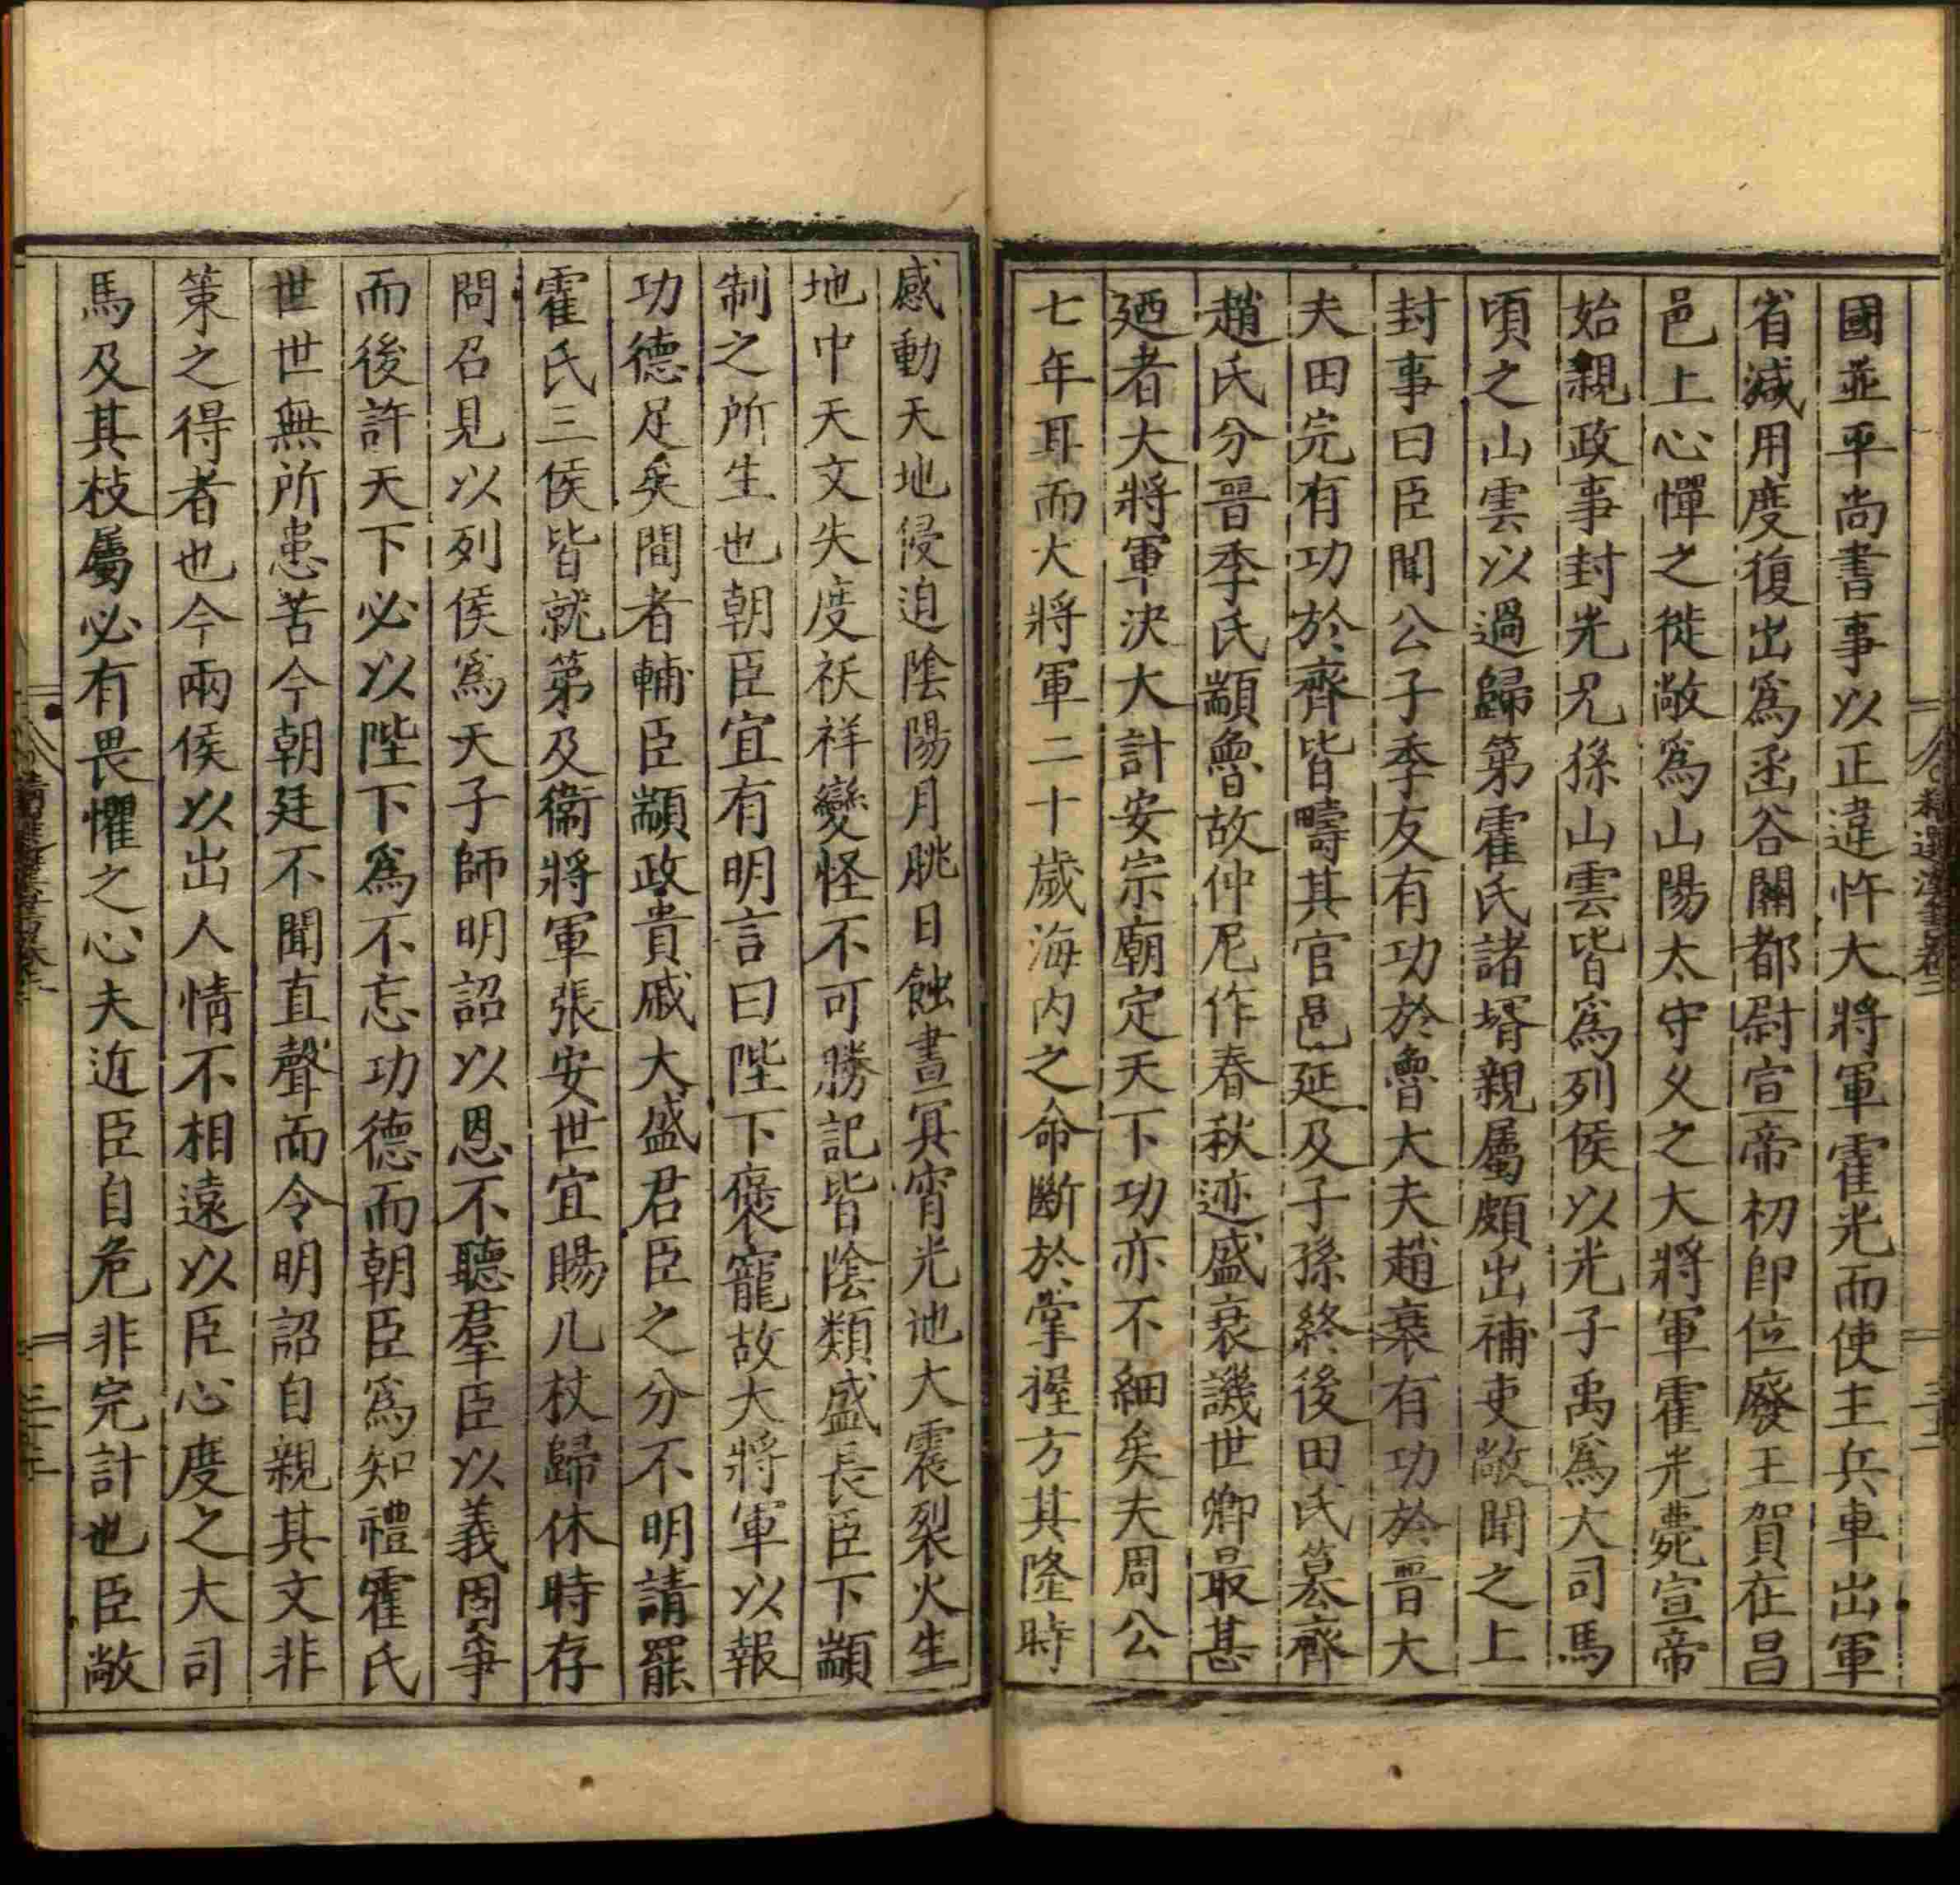 國並平尚書事以正違忤大將軍霍光而使主兵車出軍
省減用度復出爲函谷關都尉宣帝初卽位廢王賀在昌
邑上心憚之徙敞爲山陽太守久之大將軍霍光薨宣帝
始親政事封光兄孫山雲皆爲列侯以光子禹爲大司馬
頃之山雲以過歸第霍氏諸壻親屬頗出補吏敞聞之上
封事曰臣聞公子季友有功於魯大夫趙衰有功於晉大
夫田完有功於齊皆疇其官邑延及子孫終後田氏篡齊
趙氏分晉季氏顓魯故仲尼作春秋迹盛衰譏世卿最甚
廼者大將軍決大計安宗廟定天下功亦不細矣夫周公
七年耳而大將軍二十歲海內之命斷於掌握方其隆時
感動天地侵迫陰陽月朓日蝕晝冥宵光地大震裂火生
地中天文失度祅祥變怪不可勝記皆陰類盛長臣下顓
制之所生也朝臣宜有明言曰陛下褒寵故大將軍以報
功德足矣間者輔臣顓政貴戚大盛君臣之分不明請罷
霍氏三侯皆就第及衞將軍張安世宜賜几杖歸休時存
問召見以列侯爲天子師明詔以恩不聽羣臣以義固爭
而後許天下必以陛下爲不忘功德而朝臣爲知禮霍氏
世世無所患苦今朝廷不聞直聲而令明詔自親其文非
策之得者也今兩侯以出人情不相遠以臣心度之大司
馬及其枝屬必有畏懼之心夫近臣自危非完計也臣敞